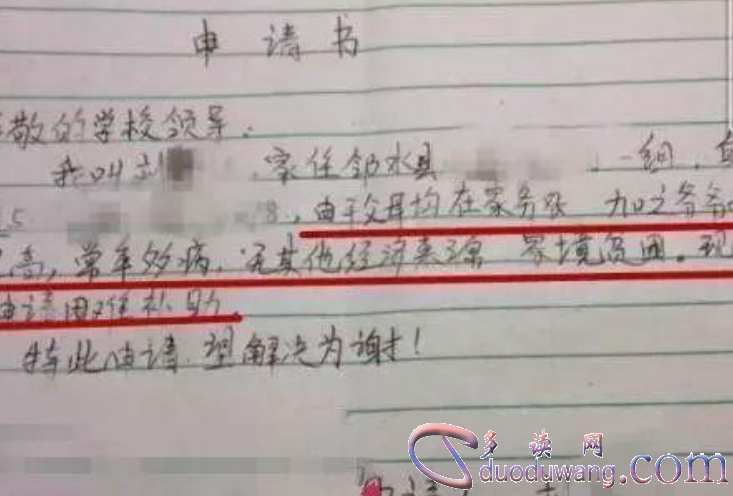 申请书
敬的学校领导.
我叫刘 家住邻水县 一组.
8, 由于父母均在家务农 加之爷爷
高, 常年多病, 无其他经济来源 家境贫困。现
申请困难补助.
特此申请. 望解决为谢!
多读网
duoduwang.com